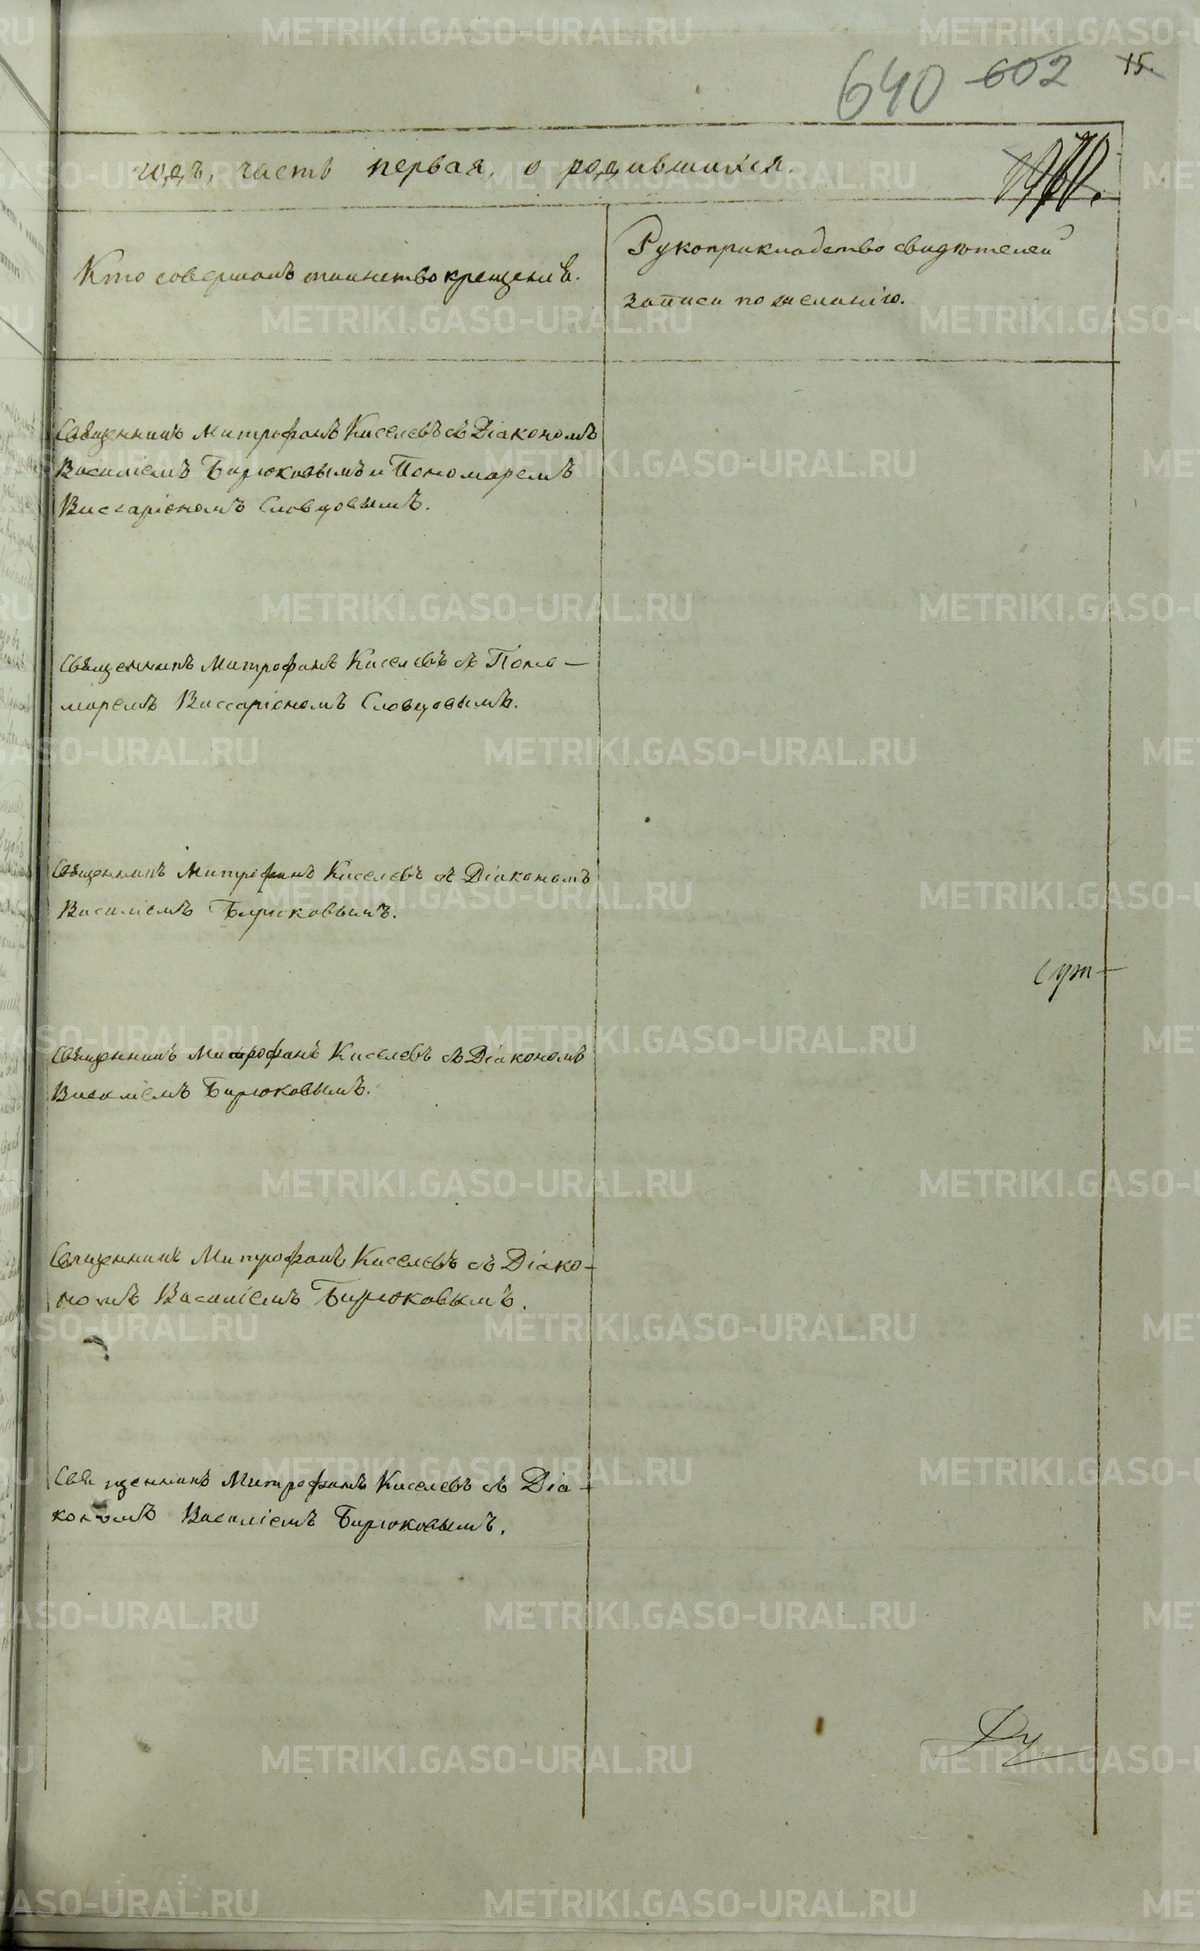 640 602 15.
годъ, часть первая, о родившихся.
Кто совершалъ таинство крещенiя.
Рукоприкладство свидѣтелей
записи по желанію.
Священникъ Митрофанъ Киселевъ съ Діакономъ
Василіемъ Бирюковымъ и Пономаремъ
Виссаріономъ Словцовымъ.
Священникъ Митрофанъ Киселевъ съ Поно-
маремъ Виссаріономъ Словцовымъ.
Священникъ Митрофанъ Киселевъ съ Діакономъ
Василіемъ Бирюковымъ.
Священникъ Митрофанъ Киселевъ съ Діакономъ
Василіемъ Бирюковымъ.
Священникъ Митрофанъ Киселевъ съ Діако-
номъ Василіемъ Бирюковымъ.
Священникъ Митрофанъ Киселевъ съ Діа-
кономъ Василіемъ Бирюковымъ.
METRIKI.GASO-URAL.RU